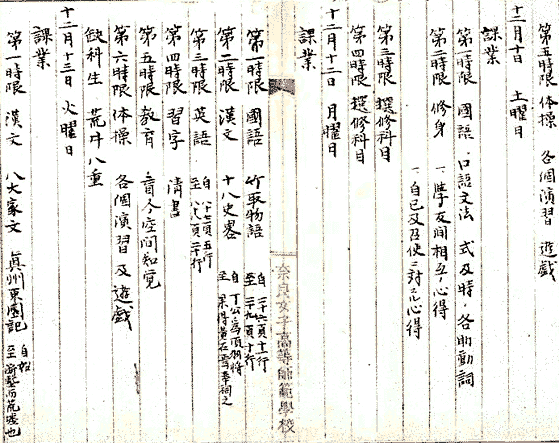 第五時限 体操 各個演習 遊戯
十二月十日 土曜日
課業
第一時限 國語 口語文法 式及時、各助動詞
第二時限 修身 一、學友間相互ノ心得
一、自己及召使ニ対スル心得
第三時限 撰修科目
第四時限 撰修科目
十二月十二日 月曜日
課業
奈良女子高等師範學校
第一時限 國語 竹取物語 自二十六頁十一行 至二十九頁十行
第二時限 漢文 十八史畧 自丁公為項羽将 至果得黄石焉奉祠之
第三時限 英語 自八十七頁五行 至八八頁二十行
第四時限 習字 清書
第五時限 教育 空間知覚
第六時限 体操 各個演習及遊戯
缺科生 荒井八重
十二月十三日 火曜日
課業
第一時限 漢文 八大家文 真州東園記 自始 至而荒墟也